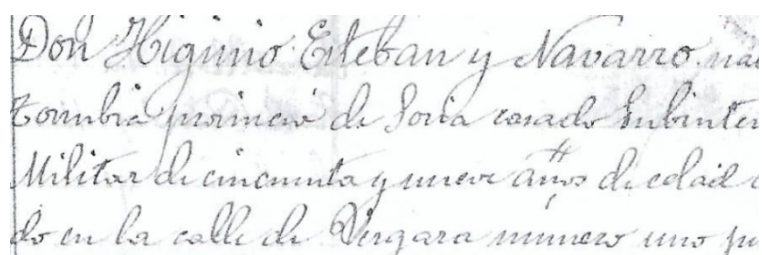 Don Higinio Esteban y Navarro na
Torrubia provincia de Soria casado Subinten
Militar de cincuenta y nueve años de edad
do en la calle de Vergara número uno